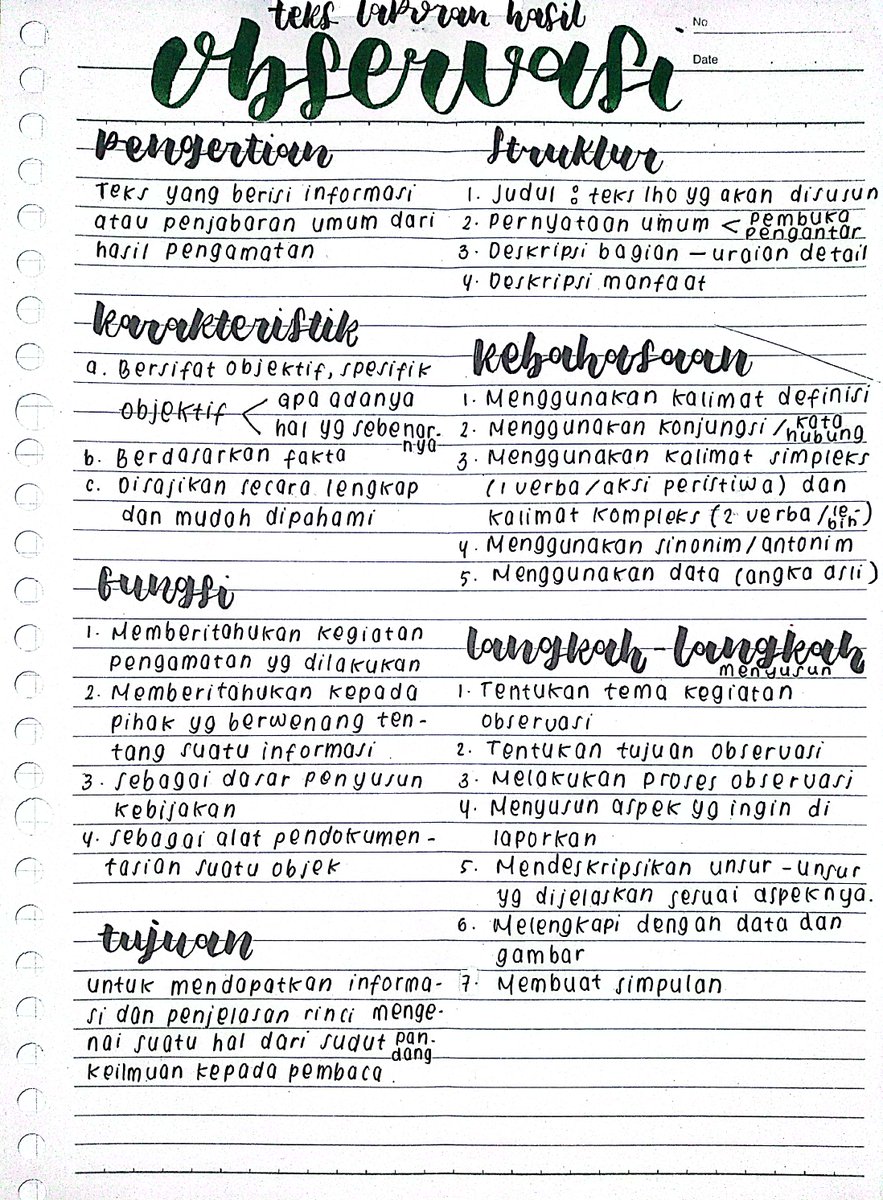 teks laporan hasil
observasi
No
Date
pengertian
Teks yang berisi informasi
atau penjabaran umum dari
hasil pengamatan
karakteristik
a. Bersifat objektif, spesifik
objektif < apa adanya
hal yg sebenar-
nya
b. Berdasarkan fakta
c. Disajikan secara lengkap
dan mudah dipahami
fungsi
1. Memberitahukan kegiatan
pengamatan yg dilakukan
2. Memberitahukan kepada
pihak yg berwenang ten-
tang suatu informasi
3. sebagai dasar penyusun
kebijakan
4. sebagai alat pendokumen-
tasian suatu objek
tujuan
untuk mendapatkan informa-
si dan penjelasan rinci menge-
nai suatu hal dari sudut pan-
dang
keilmuan kepada pembaca.
struktur
1. Judul : teks lho yg akan disusun
2. Pernyataan umum < pembuka
pengantar
3. Deskripsi bagian – uraian detail
4. Deskripsi manfaat
kebahasaan
1. Menggunakan kalimat definisi
2. Menggunakan konjungsi / kata
hubung
3. Menggunakan kalimat simpleks
(1 verba/aksi peristiwa) dan
kalimat kompleks (2 verba/le-
bih)
4. Menggunakan sinonim/antonim
5. Menggunakan data (angka asli)
langkah-langkah
menyusun
1. Tentukan tema kegiatan
observasi
2. Tentukan tujuan observasi
3. Melakukan proses observasi
4. Menyusun aspek yg ingin di
laporkan
5. Mendeskripsikan unsur-unsur
yg dijelaskan sesuai aspeknya.
6. Melengkapi dengan data dan
gambar
7. Membuat simpulan